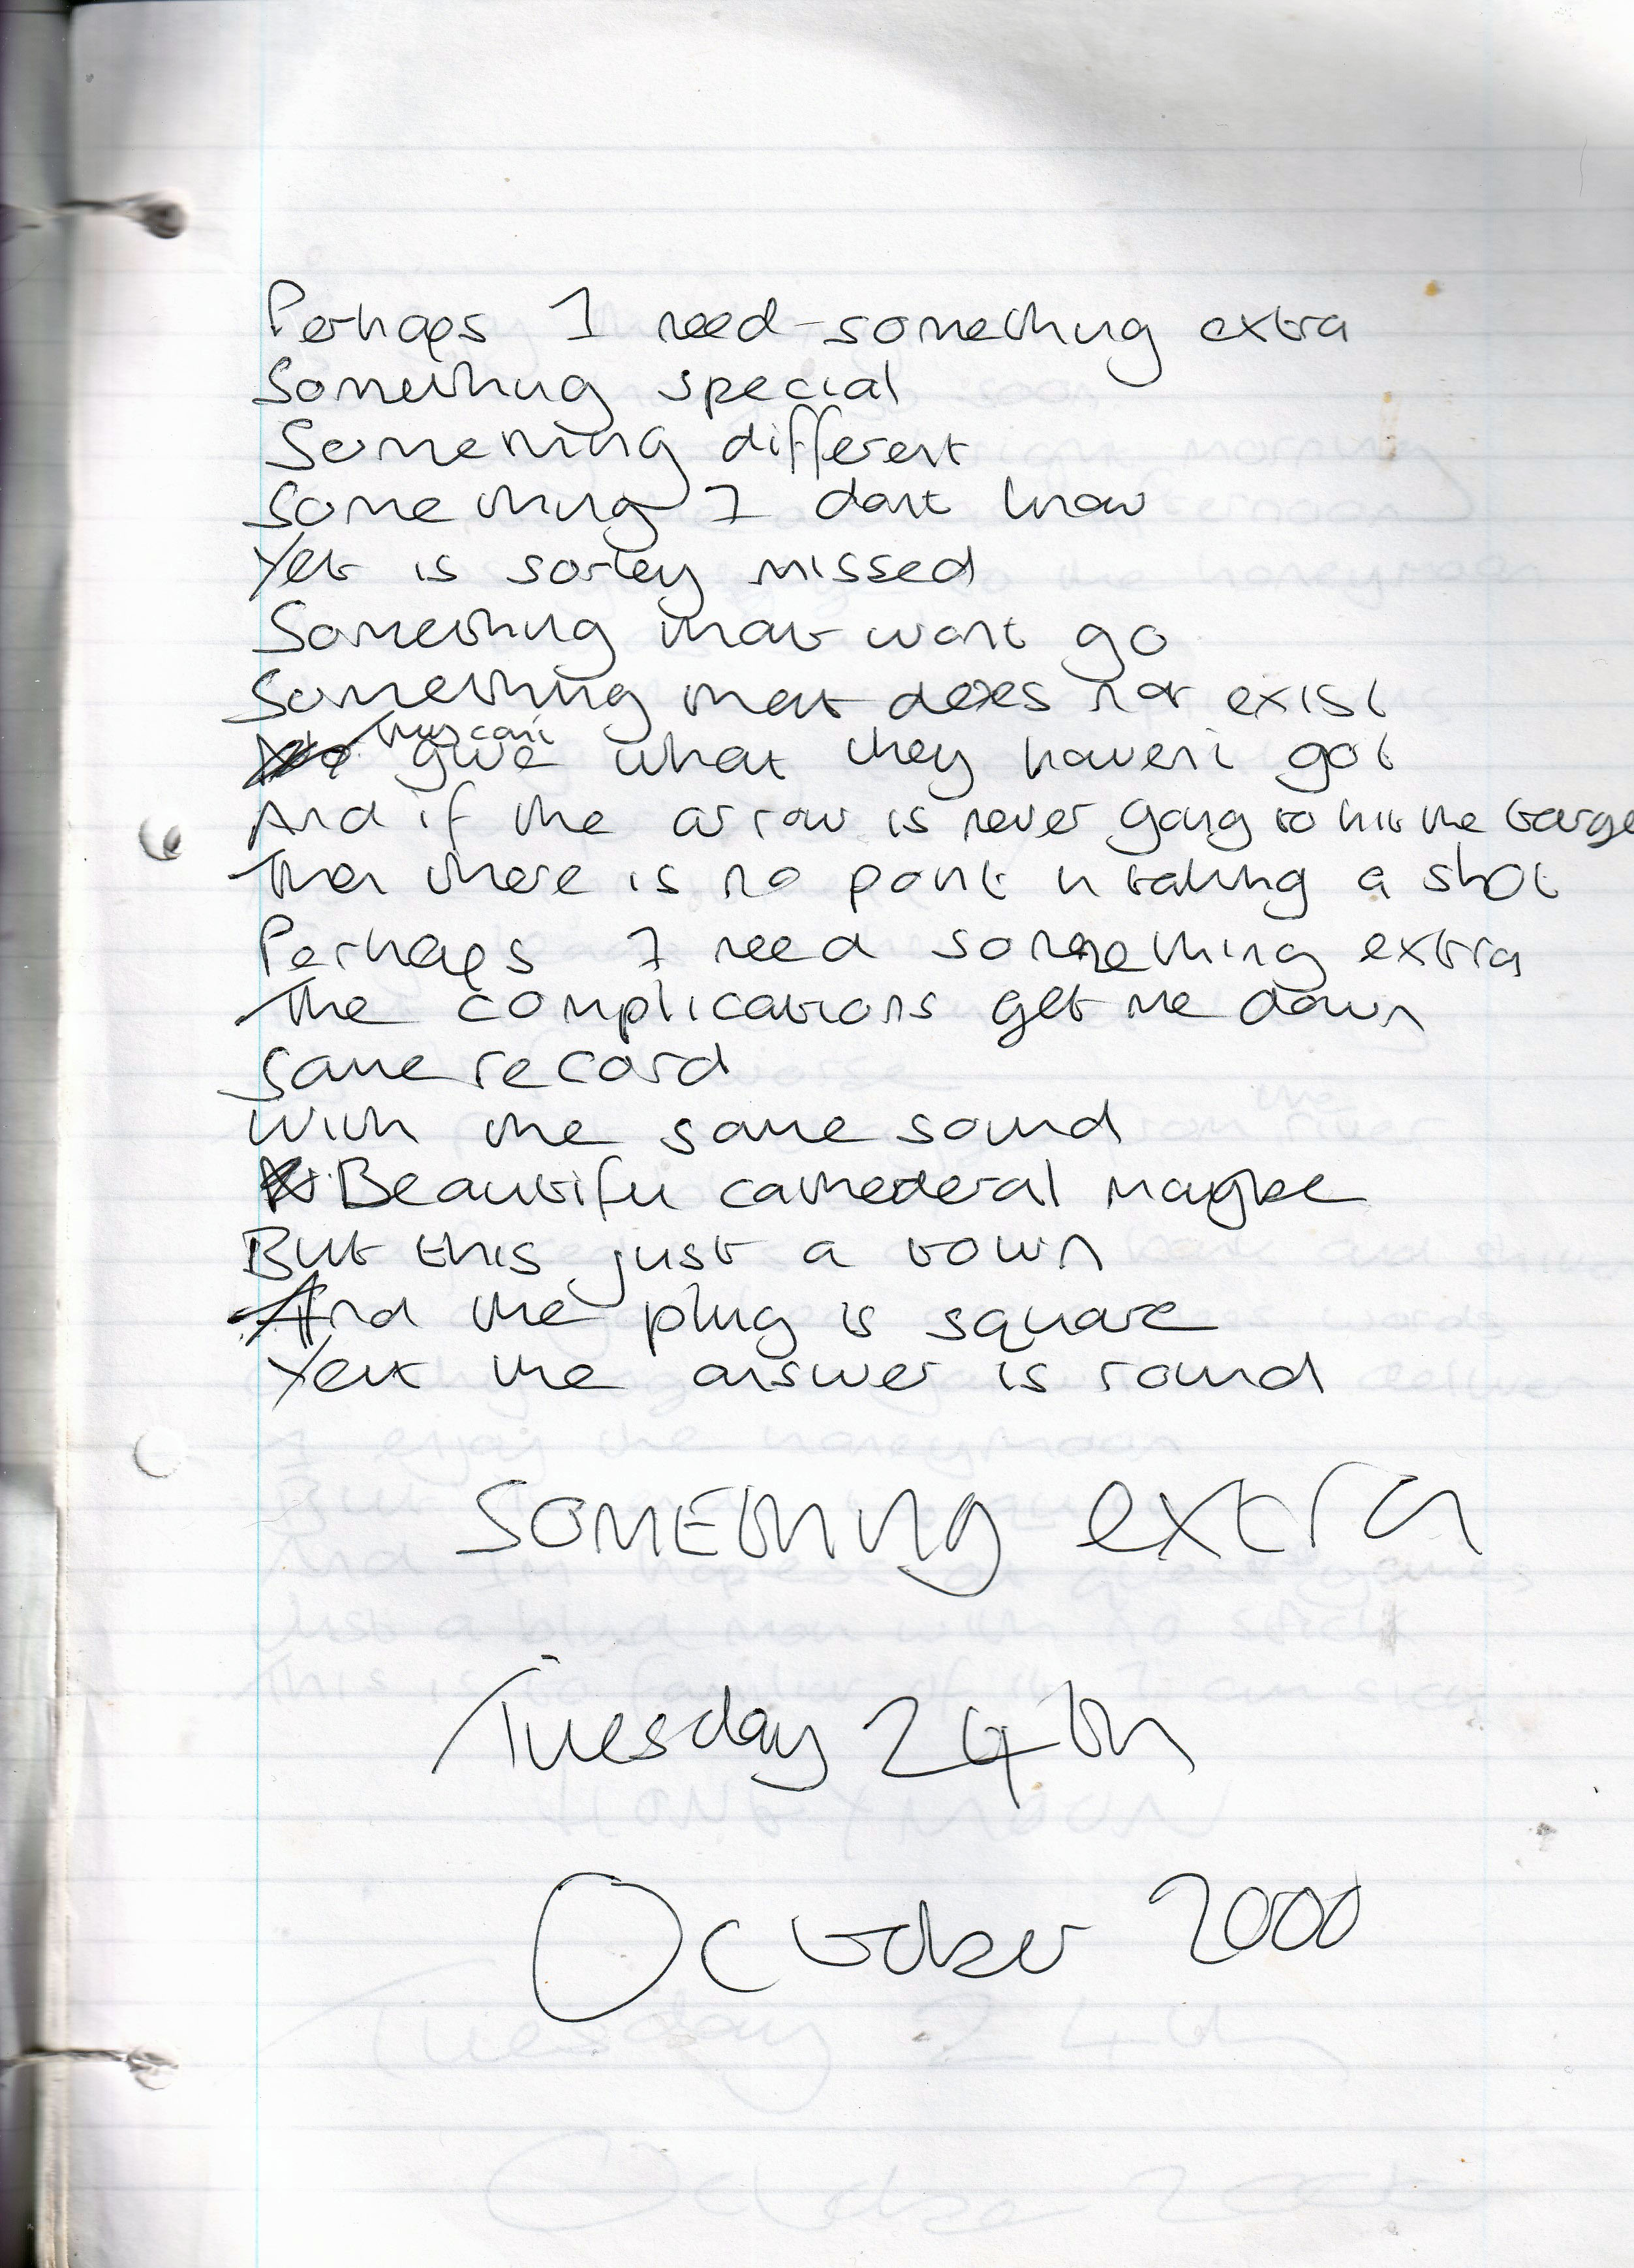 Perhaps I need something extra
Something special
Something different
Something I dont know
Yet is sorley missed
Something that wont go
Something that does not exist
They cant give what they havent got
And if the arrow is never going to hit the targe
Then there is no point in taking a shot
Perhaps I need something extra
The complications get me down
Same record
With the same sound
Beautifu cathederal maybe
But this just a town
And the plug is square
Yet the answer is round
SOMEthing extra
Tuesday 24th
October 2000